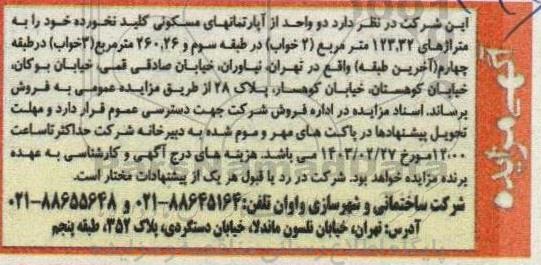 آگهی مزایده
این شرکت در نظر دارد دو واحد از آپارتمانهای مسکونی کلید نخورده خود را به
متراژهای ۱۲۳.۳۲ متر مربع (۲ خواب) در طبقه سوم و ۲۶۰.۲۶ مترمربع(۳خواب) درطبقه
چهارم(آخرین طبقه) واقع در تهران، نیاوران، خیابان صادقی قمی، خیابان بوکان،
خیابان کوهستان، خیابان کوهسار، پلاک ۲۸ از طریق مزایده عمومی به فروش
برساند. اسناد مزایده در اداره فروش شرکت جهت دسترسی عموم قرار دارد و مهلت
تحویل پیشنهادها در پاکت های مهر و موم شده به دبیرخانه شرکت حداکثر تاساعت
۱۲:۰۰مورخ ۱۴۰۳/۰۲/۲۷ می باشد. هزینه های درج آگهی و کارشناسی به عهده
برنده مزایده خواهد بود. شرکت در رد یا قبول هر یک از پیشنهادات مختار است.
شرکت ساختمانی و شهرسازی واوان تلفن:۸۸۶۴۵۱۶۴-۰۲۱ و ۸۸۶۵۵۶۴۸-۰۲۱
آدرس: تهران، خیابان نلسون ماندلا، خیابان دستگردی، پلاک ۳۵۲، طبقه پنجم